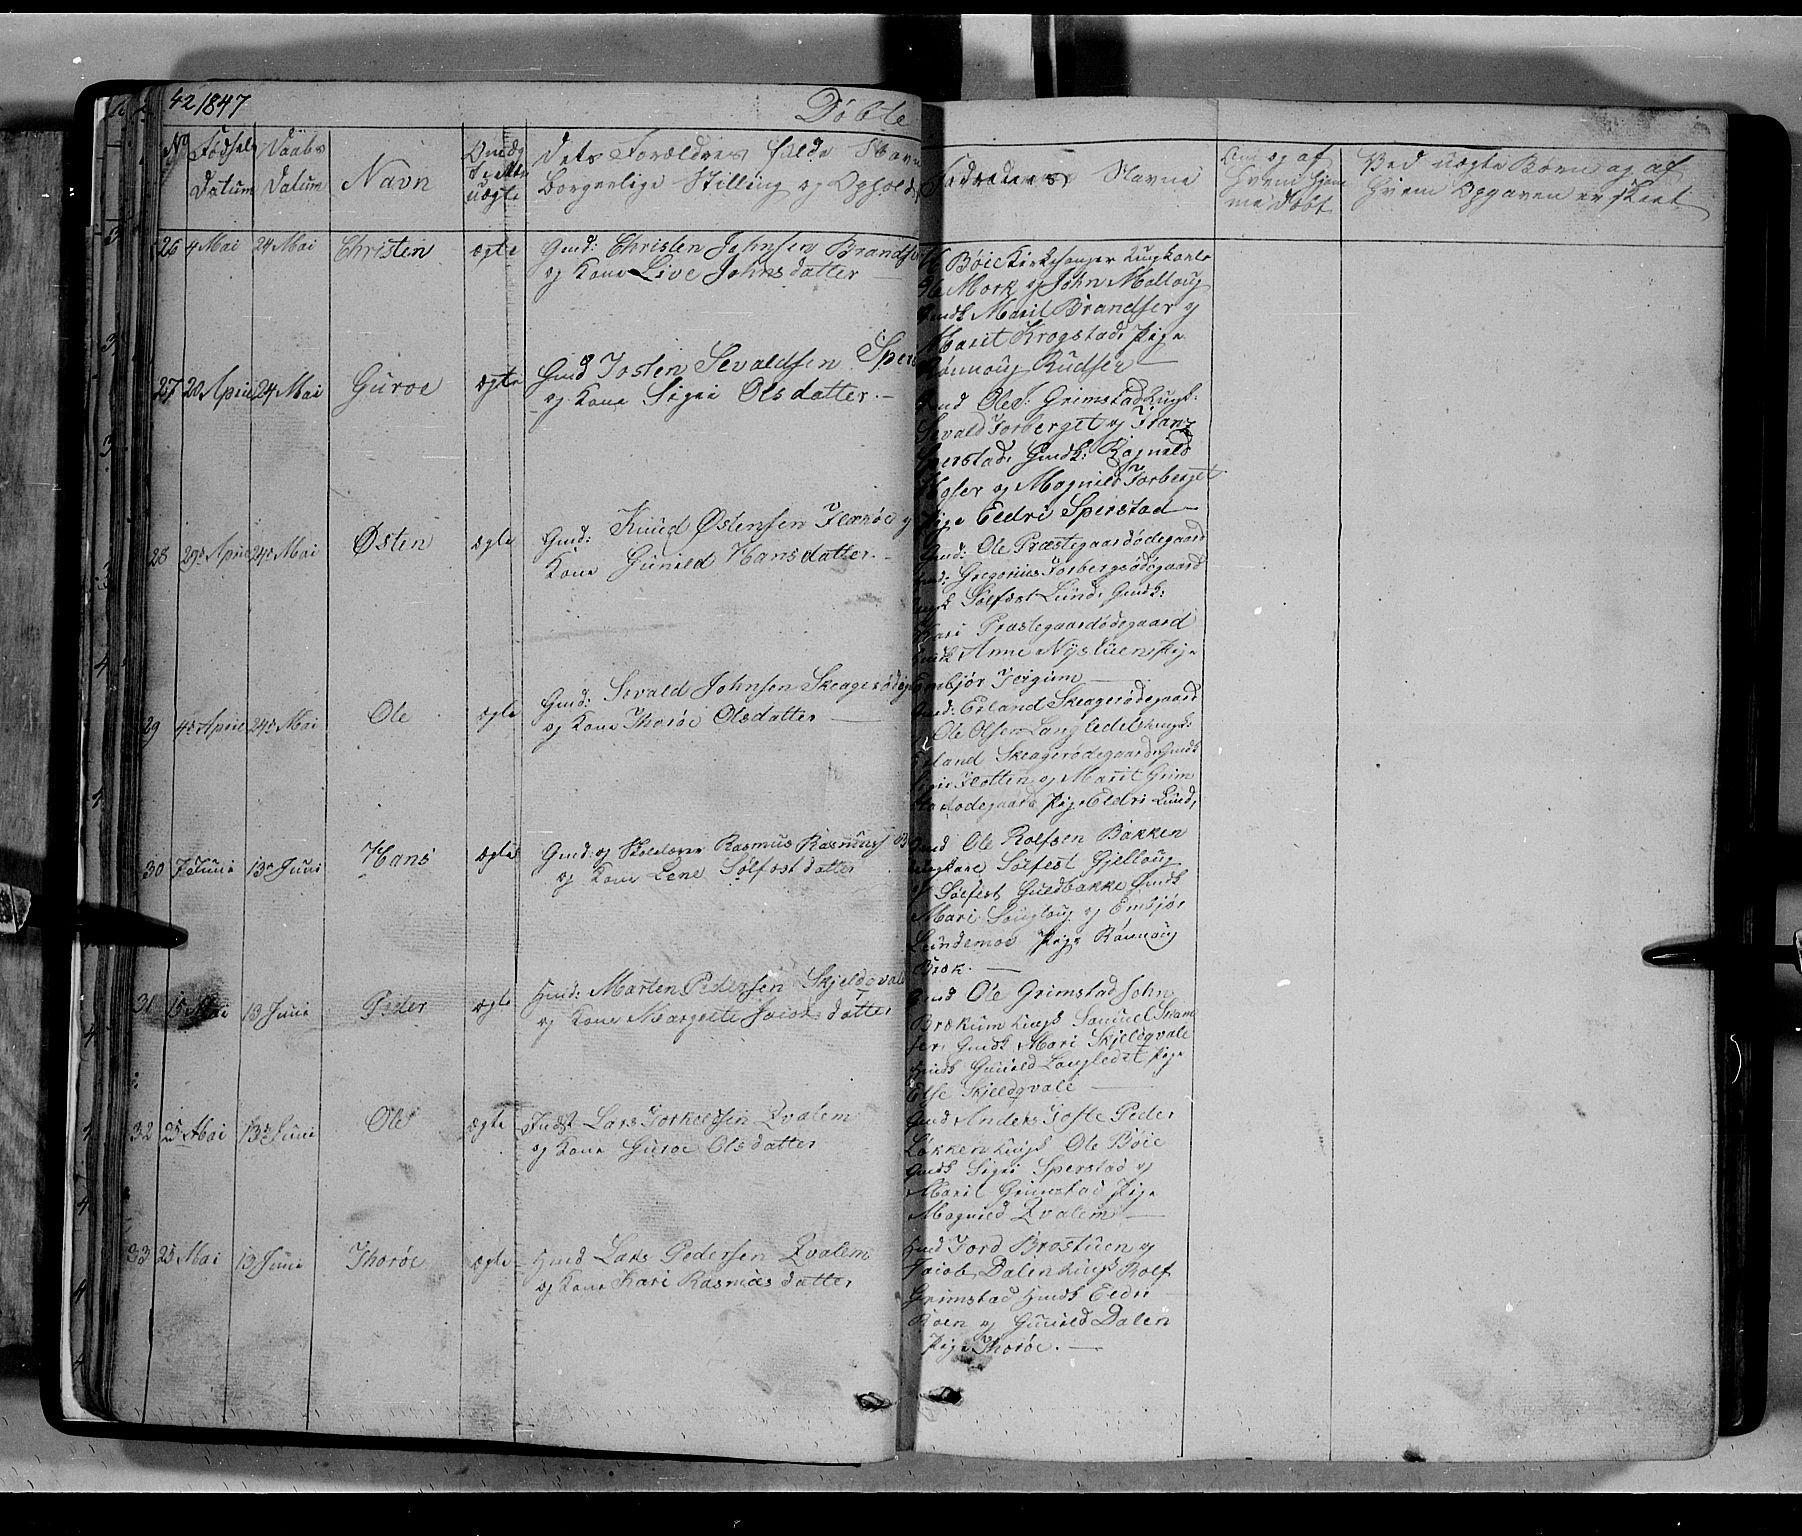 42 1847
Døbte
No
Fødsels Datum
Daabs Datum
Navn
uægte
Dets Forældres fulde Navne
Borgerlige Stilling og Ophold
Faddernes Navne
Om og af
Hvem hjem
me døbt
Ved uægte Børn og af
Hvem Opgaven er skeet
26 4 Mai 24 Mai Christen ægte Gmd: Christen Johnsen Brandser
og Kone Live Johnsdatter —
Bøie Kirkesanger Ungkarle
Mork og John Molloug
Gmdk Marit Brandser og
Marit Krogstad, Pige
Rønnoug Rudser —
27 28 April 24 Mai Guroe ægte Gmd Josten Sevaldsen Spers
og Kone Sigri Olsdatter. —
Gmd Ole Grimstad Ungk:
Sevald Forberget og Franz
Sperstad, Gmdk: Ragnild
og Magnild Forberget
Pige Eldri Sperstad —
28 29 April 24 Mai Østen ægte Gmd: Knud Østensen Flækøe og
Kone Gunild Hansdatter. —
Gmd: Ole Præstegaardsødegaard
Gregorius Forbergsødegaard
Ungk Sølfest Lund, Gmdk:
Kari Præstegaardsødegaard
Anne Nystuen, Pige
Embjør
29 4 April 24 Mai Ole ægte Gmd: Sevald Johnsen Skeagesødeg
og Kone Thorøe Olsdatter —
Gmd: Erland Skeagesødegaard
Ole Olsen Langledet Ungk:
Erland Skeagesødegaard, Gmdk
Flotten og Marit Grim
stadødegaard Pige Eldri Lund,
30 7 Juni 13 Juni Hans ægte Gmd: og Skolelærer Rasmus Rasmuss B
og Kone Lene Sølfestdatter
Gmd Ole Rolfsen Bakken
Ungkarl Sølfest Gjelloug
og Sølfest Guldbakke Gmdk
Mari og Embjør
Lundemoe Pige Rønnoug
Bræk. —
31 15 Mai 13 Juni Peder ægte Hmd: Morten Pedersen Skjeldqvale
og Kone Margrete Jacobsdatter
Gmd Ole Grimstad John
Brækum Ungk Samuel Skam
ser, Gmdk Mari Skjeldqvale
Hmdk Gunild Langledet Pige
Else Skjeldqvale —
32 25 Mai 13 Juni Ole ægte Indst Lars Torkelsen Qvalem
og Kone Guroe Olsdatter
Gmd Anders Tofte Peder
Løkken Ungk Ole Bøie
Gmdk Sigri Sperstad og
Marit Grimstad Pige
Magnild Qvalem —
33 25 Mai 13 Juni Thorøe ægte Hmd Lars Pedersen Qvalem
og Kone Kari Rasmusdatter
Hmd Tord Brostuen og
Jacob Dalen Ungk Rolf
Grimstad Hmdk Eldri
Roen og Gunild Dalen
Pige Thorøe. —